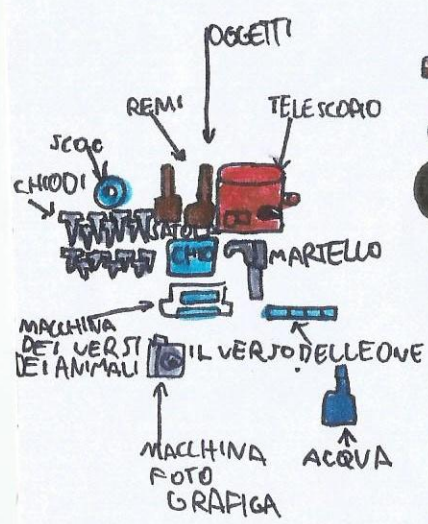 OGGETTI
REMI
TELESCOPIO
SCOC
CHIODI
MARTELLO
MACCHINA
DEI VERSI
DEI ANIMALI
IL VERSO DELLEONE
MACCHINA
FOTO
GRAFICA
ACQUA